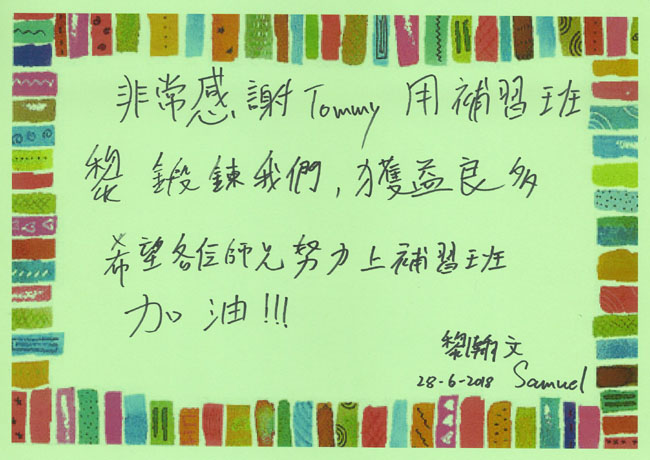 非常感謝 Tommy 用補習班
鍛鍊我們,獲益良多
希望各位師兄努力上補習班
加油!!!
黎瀚文
28-6-2018 Samuel